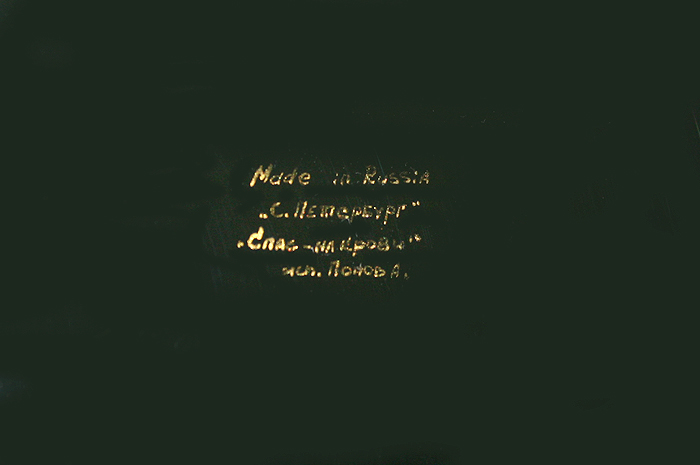 Made in Russia
„С. Петербург"
„Спас-на крови"
исп. Попов А.